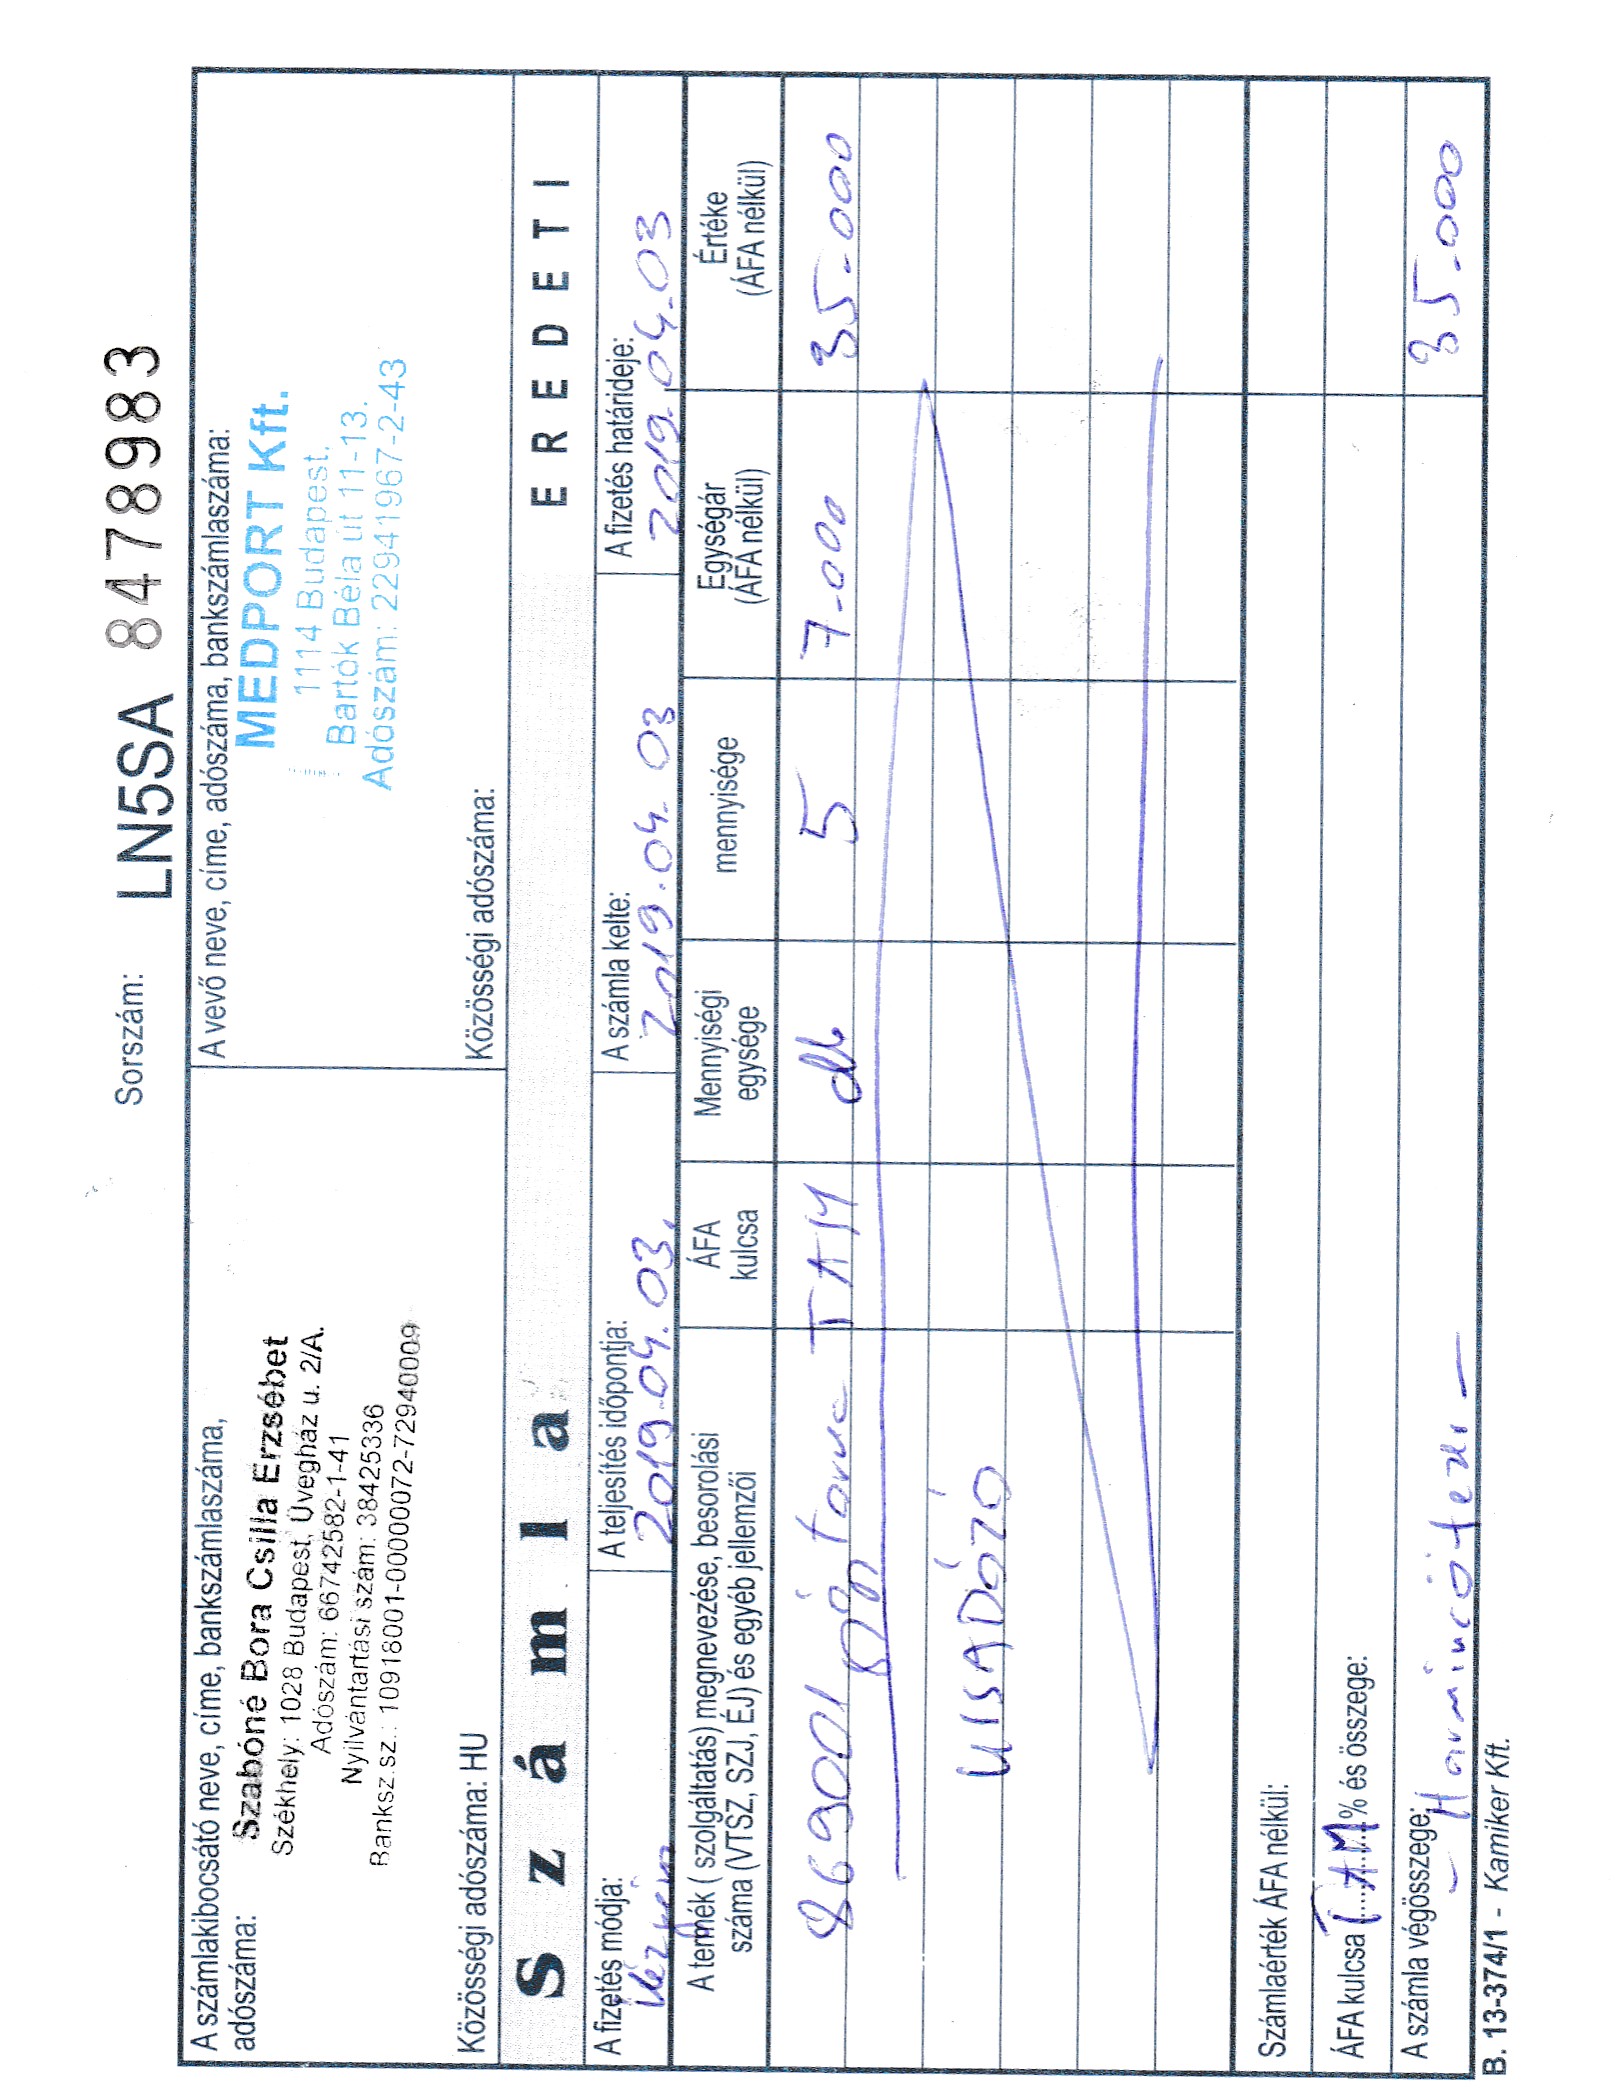 Sorszám: LN5SA 8478983
A számlakibocsátó neve, címe, bankszámlaszáma,
adószáma:
Szabóné Bora Csilla Erzsébet
Székhely: 1028 Budapest, Üvegház u. 2/A.
Adószám: 66742582-1-41
Nyilvántartási szám: 38425336
Banksz.sz.: 10918001-00000072-72940009
Közösségi adószáma: HU
A vevő neve, címe, adószáma, bankszámlaszáma:
MEDPORT Kft.
1114 Budapest,
Bartók Béla út 11-13.
Adószám: 22941967-2-43
Közösségi adószáma:
Számla
EREDETI
A fizetés módja:
Kézpénz
A teljesítés időpontja:
2019.04.03.
A számla kelte:
2019.04.03
A fizetés határideje:
2019.04.03
A termék ( szolgáltatás) megnevezése, besorolási
száma (VTSZ, SZJ, ÉJ) és egyéb jellemzői
ÁFA
kulcsa
Mennyiségi
egysége
mennyisége
Egységár
(ÁFA nélkül)
Értéke
(ÁFA nélkül)
869001 torna TAM db 5 7.000 35.000
KISADÓZÓ
Számlaérték ÁFA nélkül:
ÁFA kulcsa TAM % és összege:
A számla végösszege: 35.000
- Harmincötezer -
B. 13-374/1 - Kamiker Kft.